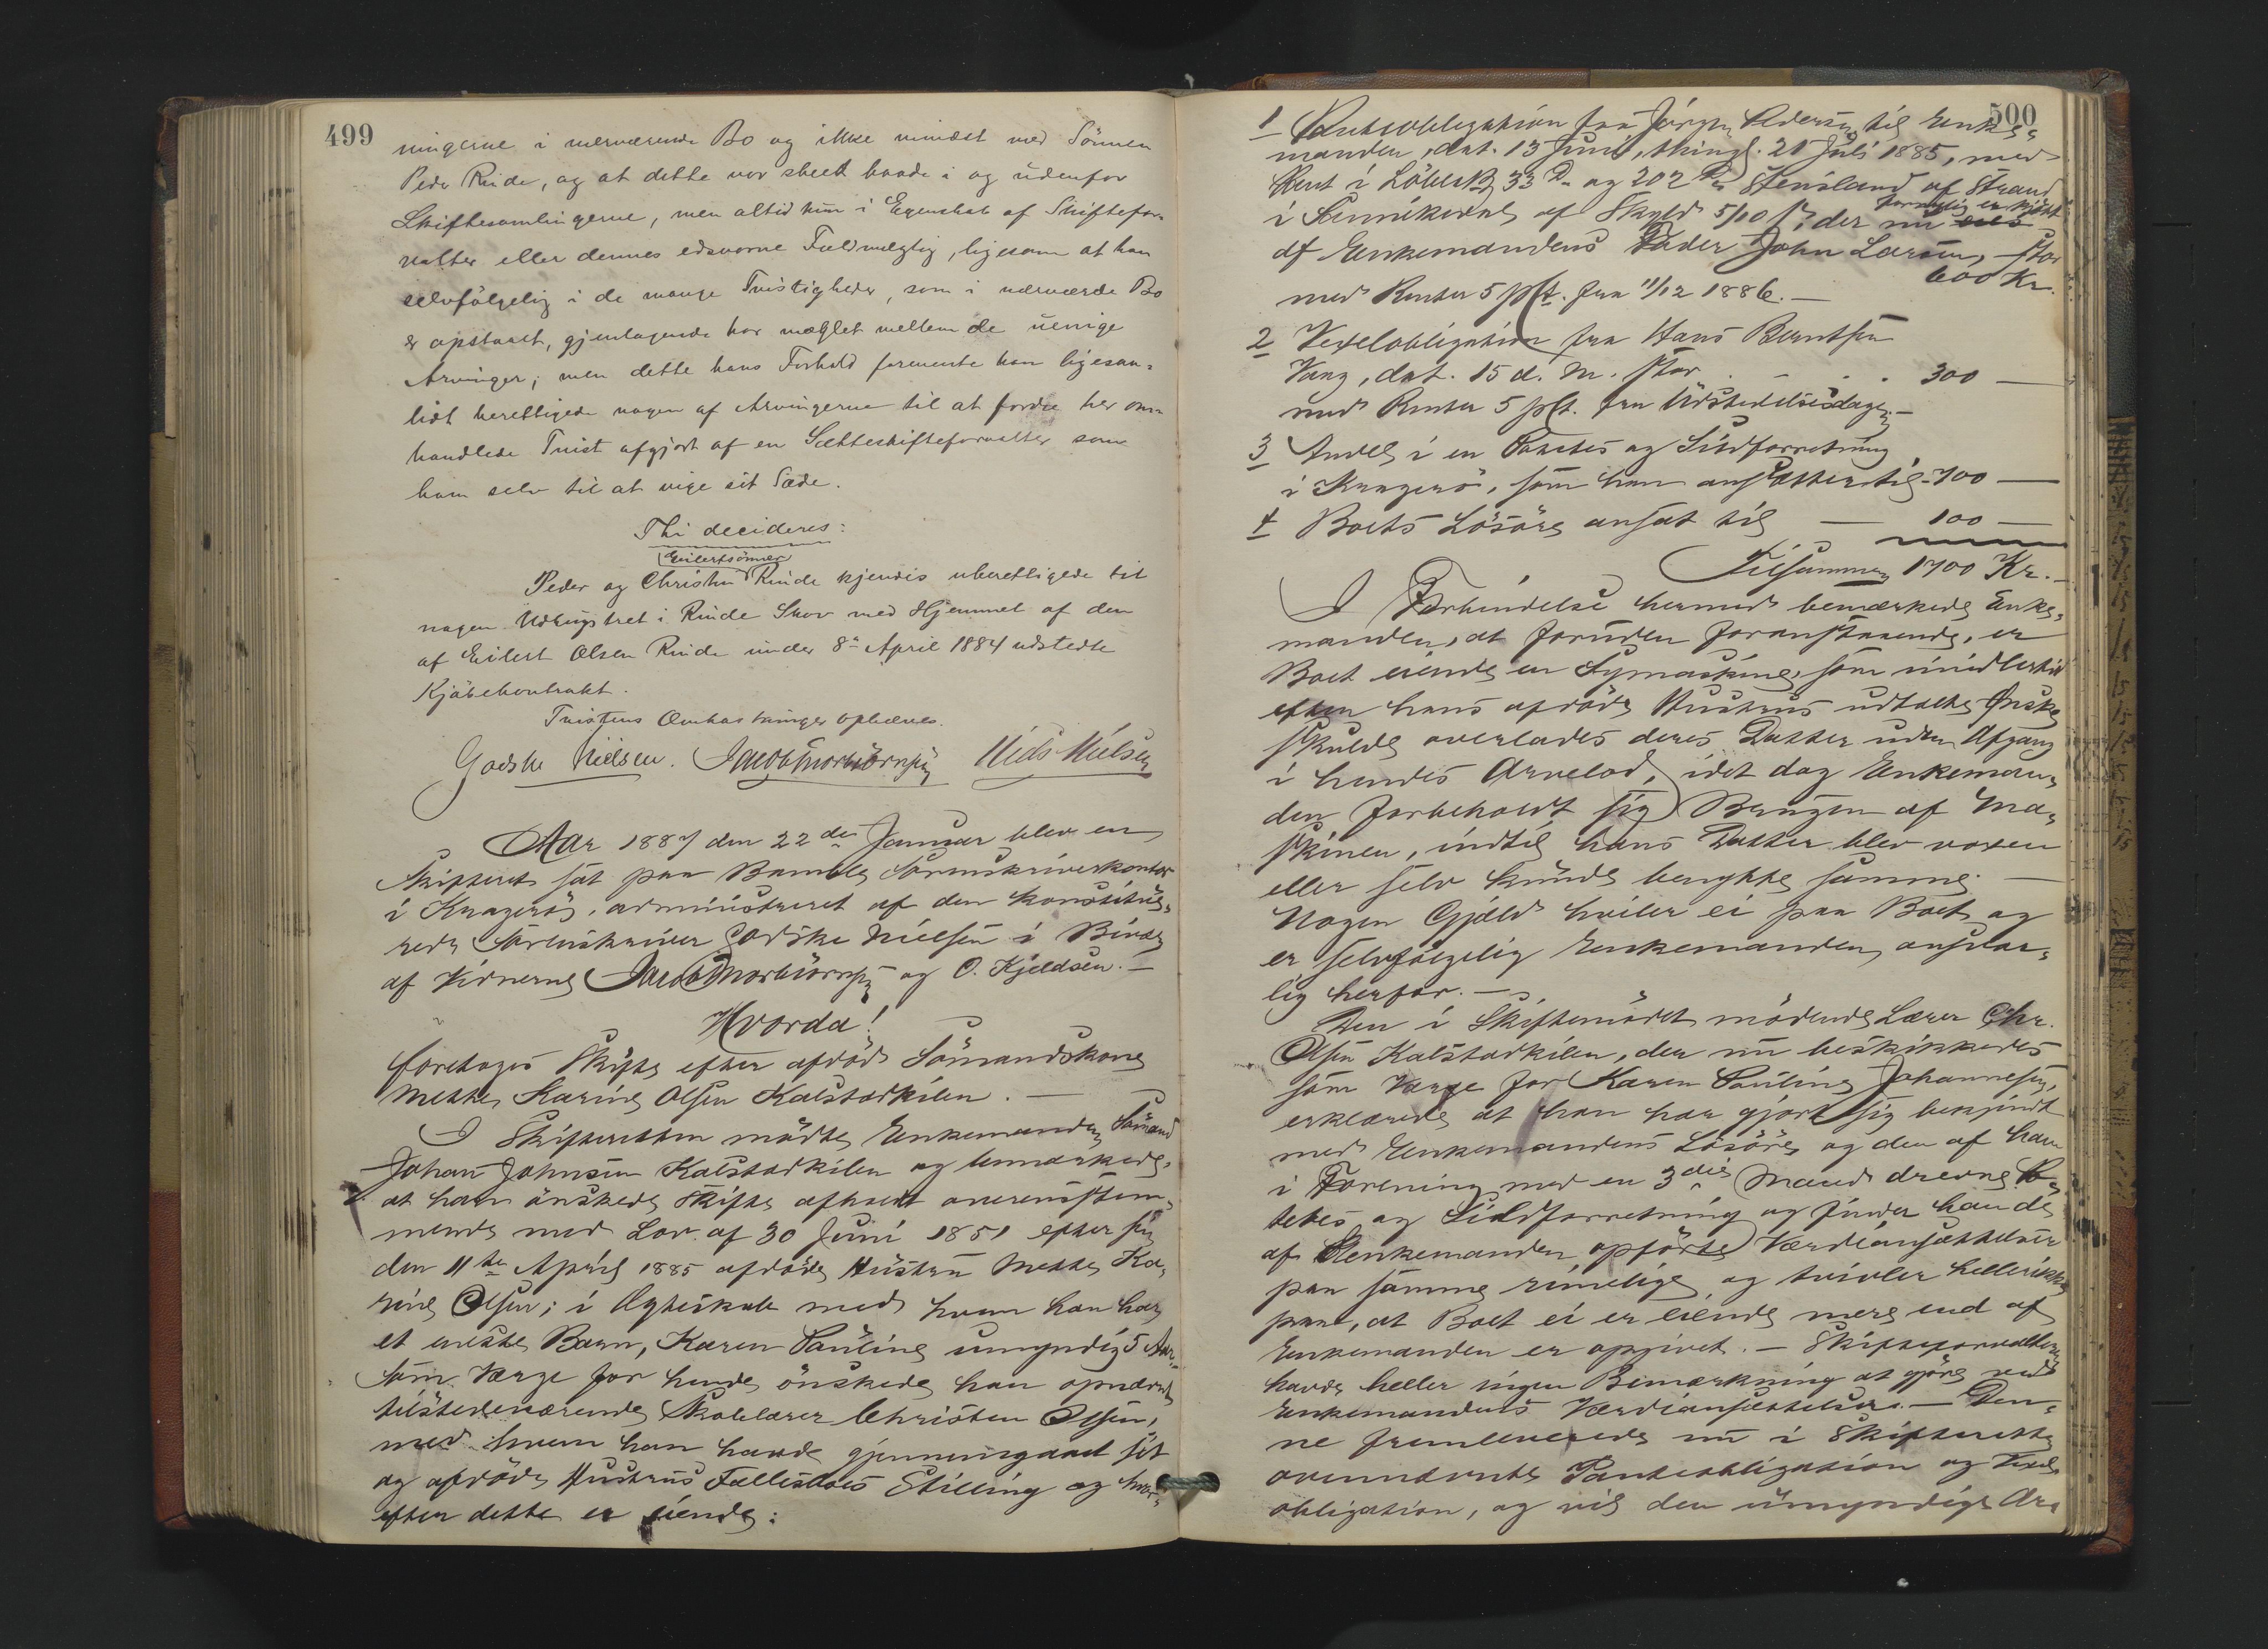 499
ningerne i nærværende Bo og ikke mindst med Sönnen
Peder Rinde, og at dette var skeet baade i og udenfor
Skiftesamlingerne, men altid kun i Egenskab af Skiftefor-
valter eller dennes edsvorne Fuldmægtig, ligesom at han
selvfölgelig i de mange Tvistigheder, som i nærværde Bo
er opstaaet, gjentagende har mæglet mellem de uenige
Arvinger; men dette hans Forhold formente han ligesaa-
lidt berettigede nogen af Arvingerne til at fordre her om-
handlede Tvist afgjort af en Sætteskifteforvalter som
ham selv til at vige sit Sæde.
Thi decideres:
Eilertsönner
Peder og Christen Rinde kjendes uberettigede til
nogen Udvingstret i Rinde Skov med Hjemmel af den
af Eilert Olsen Rinde under 8de April 1884 udstedte
Kjöbekontrakt.
Tvistens Omkostninger ophæves.
Godske Nielsen. Jacob Thorbiörnsen Niels Nielsen
Aar 1887 den 22de Januar blev en
Skifteret sat paa Bamble Sorenskriverkontor
i Kragerö, administreret af den konstitue-
rede Sorenskriver Godske Nielsen i Bivær
af Vidnerne Jacob Thorbiörnsen og O. Kjeldsen. —
Hvorda!
foretoges Skifte efter afdöde Sömandskone
Mette Karine Olsen Kalstadkilen. —
I Skifteretten mödte Enkemanden, Sömand
Johan Johnsen Kalstadkilen og bemærkede,
at han önskede Skifte afholdt overensstem-
mende med Lov af 30 Juni 1851 efter sin
den 11te April 1885 afdöde Hustru Mette Ka-
rine Olsen; i Ægteskab med hvem han har
et eneste Barn, Karen Pauline umyndig 5 Aar.
Som Værge for hende önskede han opnævnt
tilstedeværende Skolelærer Christen Olsen,
med hvem han havde gjennemgaaet sit
og afdöde Hustrus Fællesboes Stilling og hvor-
efter dette er eiende:
500
1 Panteobligation fra Jörgen Pedersen til Enke-
manden, dat. 13 Juni, thingl. 21 Juli 1885, med
Pant i Löbe № 33 D. og 202 Stensland af Strand
i Sannikedal af Skyld 5/10 ß, der nu
formentlig er kjöbt
af Enkemandens Fader John Larsen, stor
600 Kr.
med Renter 5 pCt. fra 11/12 1886. —
2 Vexelobligation fra Hans Berntsen
Vang, dat. 15 d. M. stor . . . 300 —
med Renter 5 pCt. fra Udstedelsesdagen. —
3 Andel i en Potetes og Sildforretning
i Kragerö, som han ansætter til 700 —
4 Boets Lösöre ansat til — 100 —
Tilsammen 1700 Kr. —
I Forbindelse hermed bemærkede Enke-
manden, at foruden foranstaaende, er
Boet eiende en Symaskine, som imidlertid
efter hans afdöde Hustrus udtalte Önske
skulde overlades deres Datter uden Afgang
i hendes Arvelod, idet dog Enkeman-
den forbeholdt sig Brugen af Ma-
skinen, indtil hans Datter blev voxen
eller selv kunde benytte samme. —
Nogen Gjæld hviler ei paa Boet og
er selvfölgelig Enkemanden ansvar-
lig herfor. —
Den i Skiftemödet mödende Lærer Chr.
Olsen Kalstadkilen, der nu beskikkedes
som Værge for Karen Pauline Johannesen,
erklærede at han har gjort sig bekjendt
med Enkemandens Lösöre, og den af ham
i Forening med en 3die Mand drevne Po-
tetes og Sildforretning og finder han de
af Enkemanden opförte Værdiansættelser
paa samme rimelige og tvivler heller ikke
paa, at Boet ei er eiende mere end af
Enkemanden er opgivet. — Skifteforvalteren
havde heller ingen Bemærkning at gjöre ved
Enkemandens Værdiansættelser. — Den-
ne fremleverede nu i Skifteretten
ovennævnte Panteobligation og Vexel-
obligation, og vil den umyndige Ar-